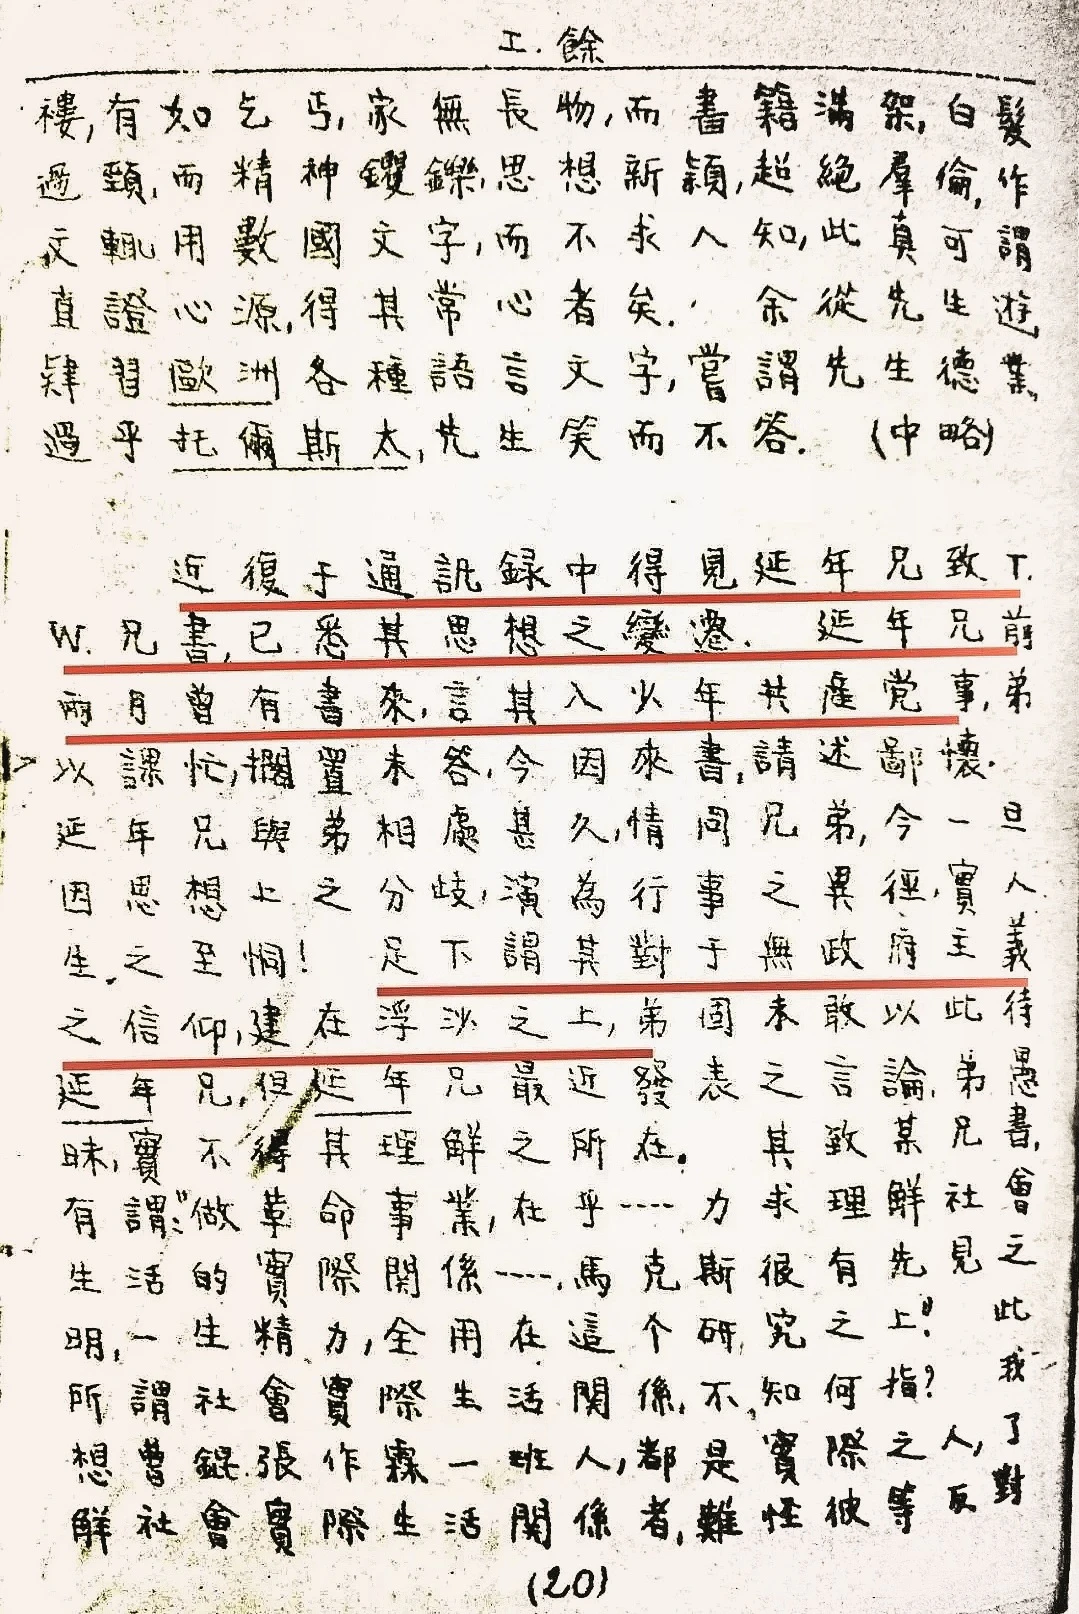 工.餘
褸,有如乞丐,家無長物,而書籍滿架,白髮
過頸,而精神钁鑠,思想新穎,超絕羣倫,作
文輒用數國文字,而不求人知,此真可謂
直證心源,得其常心者矣. 余從先生遊
肄習歐洲各種語言文字,嘗謂先生德業,
過乎托爾斯太,先生笑而不答. (中略)
近復于通訊録中得見延年兄致T.
W.兄書,已悉其思想之變遷. 延年兄前
兩月曾有書來,言其入少年共産党事,弟
以課忙,擱置未答,今因來書,請述鄙懷.
延年兄與弟相處甚久,情同兄弟,今一旦
因思想上之分歧,演為行事之異徑,實人
生之至恫! 足下謂其對于無政府主義
之信仰,建在浮沙之上,弟固未敢以此待
延年兄,但延年兄最近發表之言論,弟愚
昧,實不得其理解之所在。 其致某兄書,
有謂:"做革命事業,在乎----力求理解社會
生活的實際関係----.馬克斯很有先見之
明,一生精力,全用在這个研究之上!"此
所謂社會實際生活関係,不知何指? 我
想曹錕張作霖一班人,都是實際之人,了
解社會實際生活関係者,難怪彼等反對
(20)